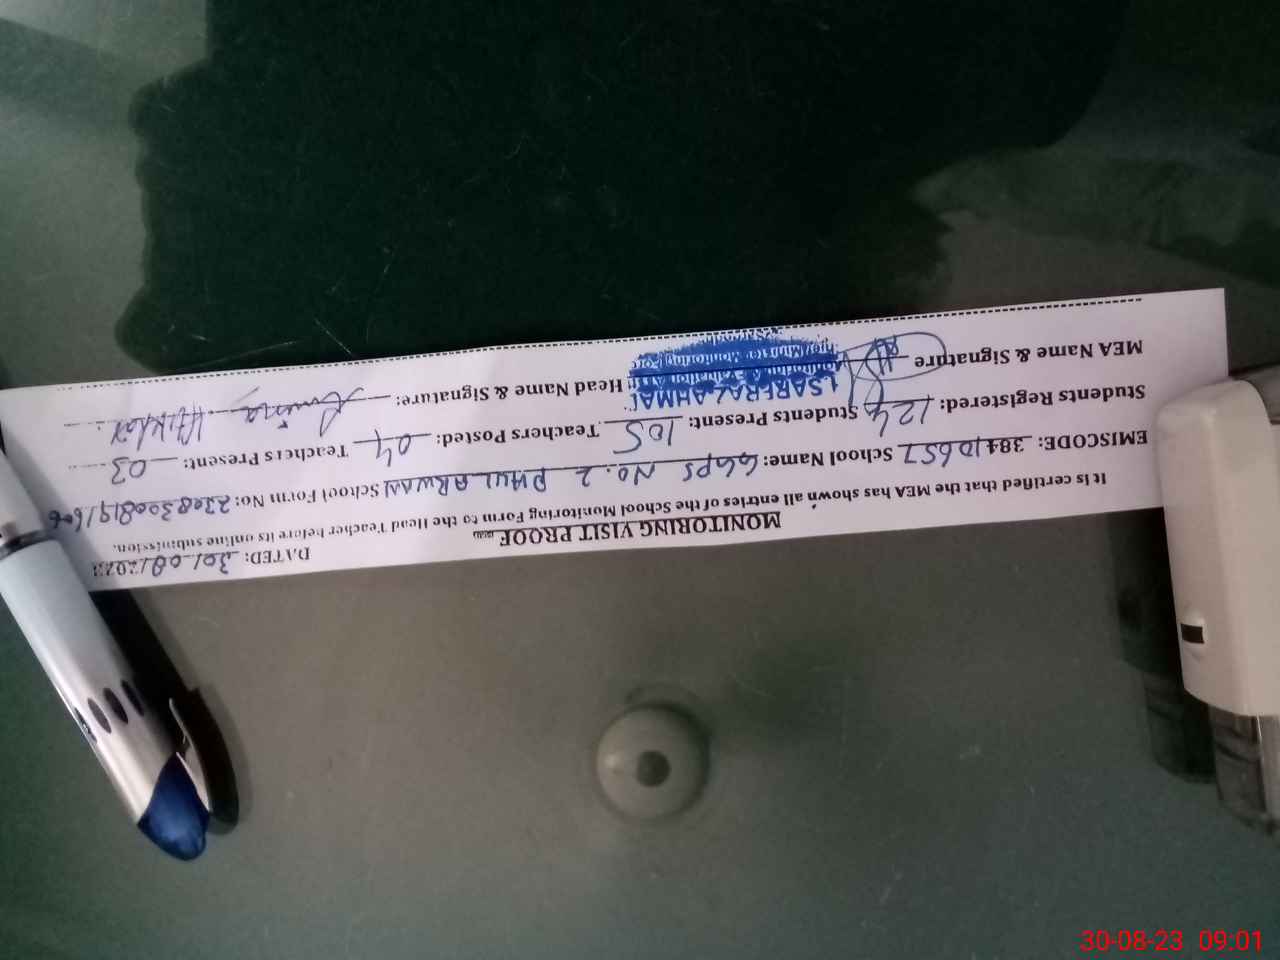 MONITORING VISIT PROOF
DATED: 30/08/2023
It is certified that the MEA has shown all entries of the School Monitoring Form to the Head Teacher before its online submission.
EMISCODE: 38410657 School Name: GGPS No. 2 PHULARWAN School Form No: 23083008191606
Students Registered: 124 Students Present: 105 Teachers Posted: 04 Teachers Present: 03
MEA Name & Signature Head Name & Signature: Amina
SARFRAZ AHMAD
Monitoring & Evaluation
30-08-23 09:01